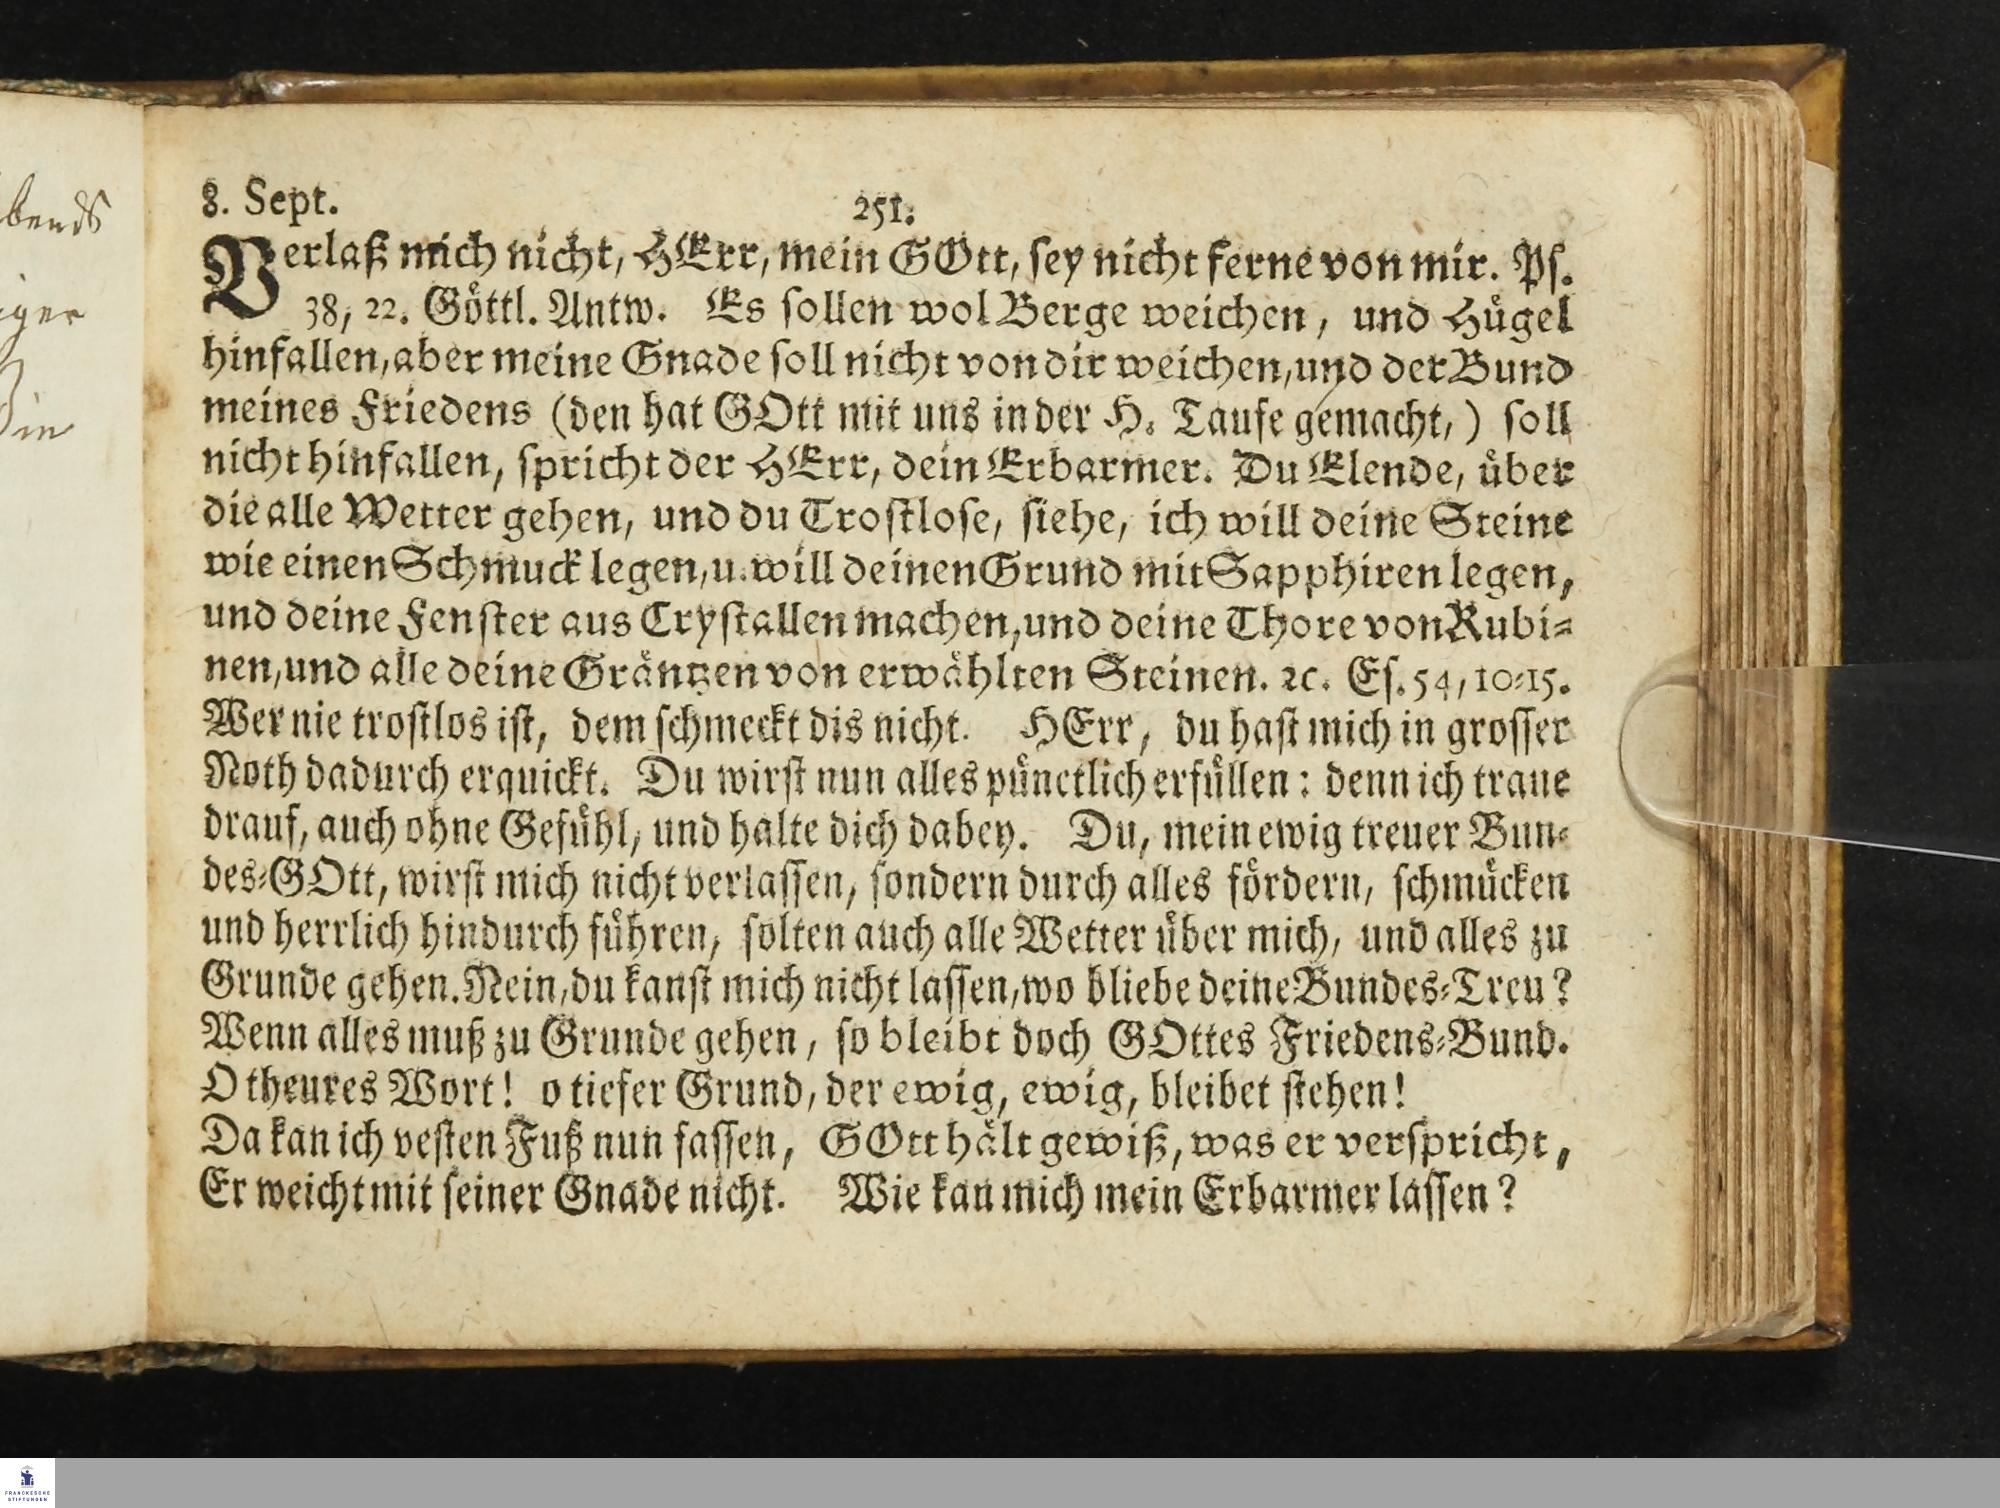 bends
iger
in
8. Sept. 251.
Verlaß mich nicht, HErr, mein GOtt, sey nicht ferne von mir. Ps.
38, 22. Göttl. Antw. Es sollen wol Berge weichen, und Hügel
hinfallen, aber meine Gnade soll nicht von dir weichen, und der Bund
meines Friedens (den hat GOtt mit uns in der H. Taufe gemacht,) soll
nicht hinfallen, spricht der HErr, dein Erbarmer. Du Elende, über
die alle Wetter gehen, und du Trostlose, siehe, ich will deine Steine
wie einen Schmuck legen, u. will deinen Grund mit Sapphiren legen,
und deine Fenster aus Crystallen machen, und deine Thore von Rubi-
nen, und alle deine Gräntzen von erwählten Steinen. ꝛc. Es. 54, 10-15.
Wer nie trostlos ist, dem schmeckt dis nicht. HErr, du hast mich in grosser
Noth dadurch erquickt. Du wirst nun alles pünctlich erfüllen: denn ich traue
drauf, auch ohne Gefühl, und halte dich dabey. Du, mein ewig treuer Bun-
des-GOtt, wirst mich nicht verlassen, sondern durch alles fördern, schmücken
und herrlich hindurch führen, solten auch alle Wetter über mich, und alles zu
Grunde gehen. Nein, du kanst mich nicht lassen, wo bliebe deine Bundes-Treu?
Wenn alles muß zu Grunde gehen, so bleibt doch GOttes Friedens-Bund.
O theures Wort! o tiefer Grund, der ewig, ewig, bleibet stehen!
Da kan ich vesten Fuß nun fassen, GOtt hält gewiß, was er verspricht,
Er weicht mit seiner Gnade nicht. Wie kan mich mein Erbarmer lassen?
FRANCKESCHE
STIFTUNGEN